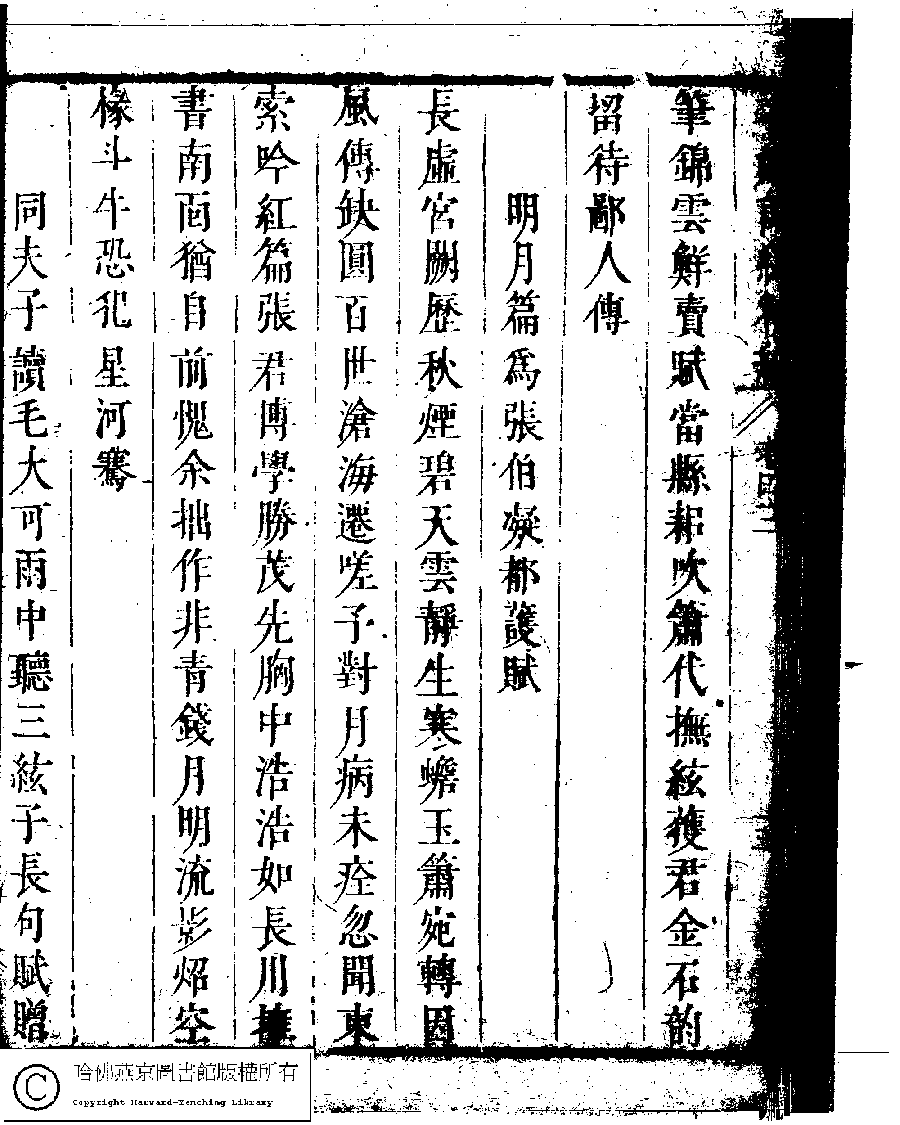 筆錦雲鮮賣賦當縣耜吹簫代撫絃獲君金石韵
留待鄙人傳
明月篇爲張伯凝都護賦
長虛宮闕歷秋煙碧天雲靜生寒蟾玉簫宛轉因
風傳缺圓百世滄海遷嗟予對月病未痊忽聞東
索吟紅篇張君博學勝茂先胸中浩浩如長川擁
書南面猶自前愧余拙作非青錢月明流影炤空
椽斗牛恐犯星河騫
同夫子讀毛大可雨中聽三絃子長句賦贈
哈佛燕京圖書館版權所有
Copyright Harvard-Yenching Library